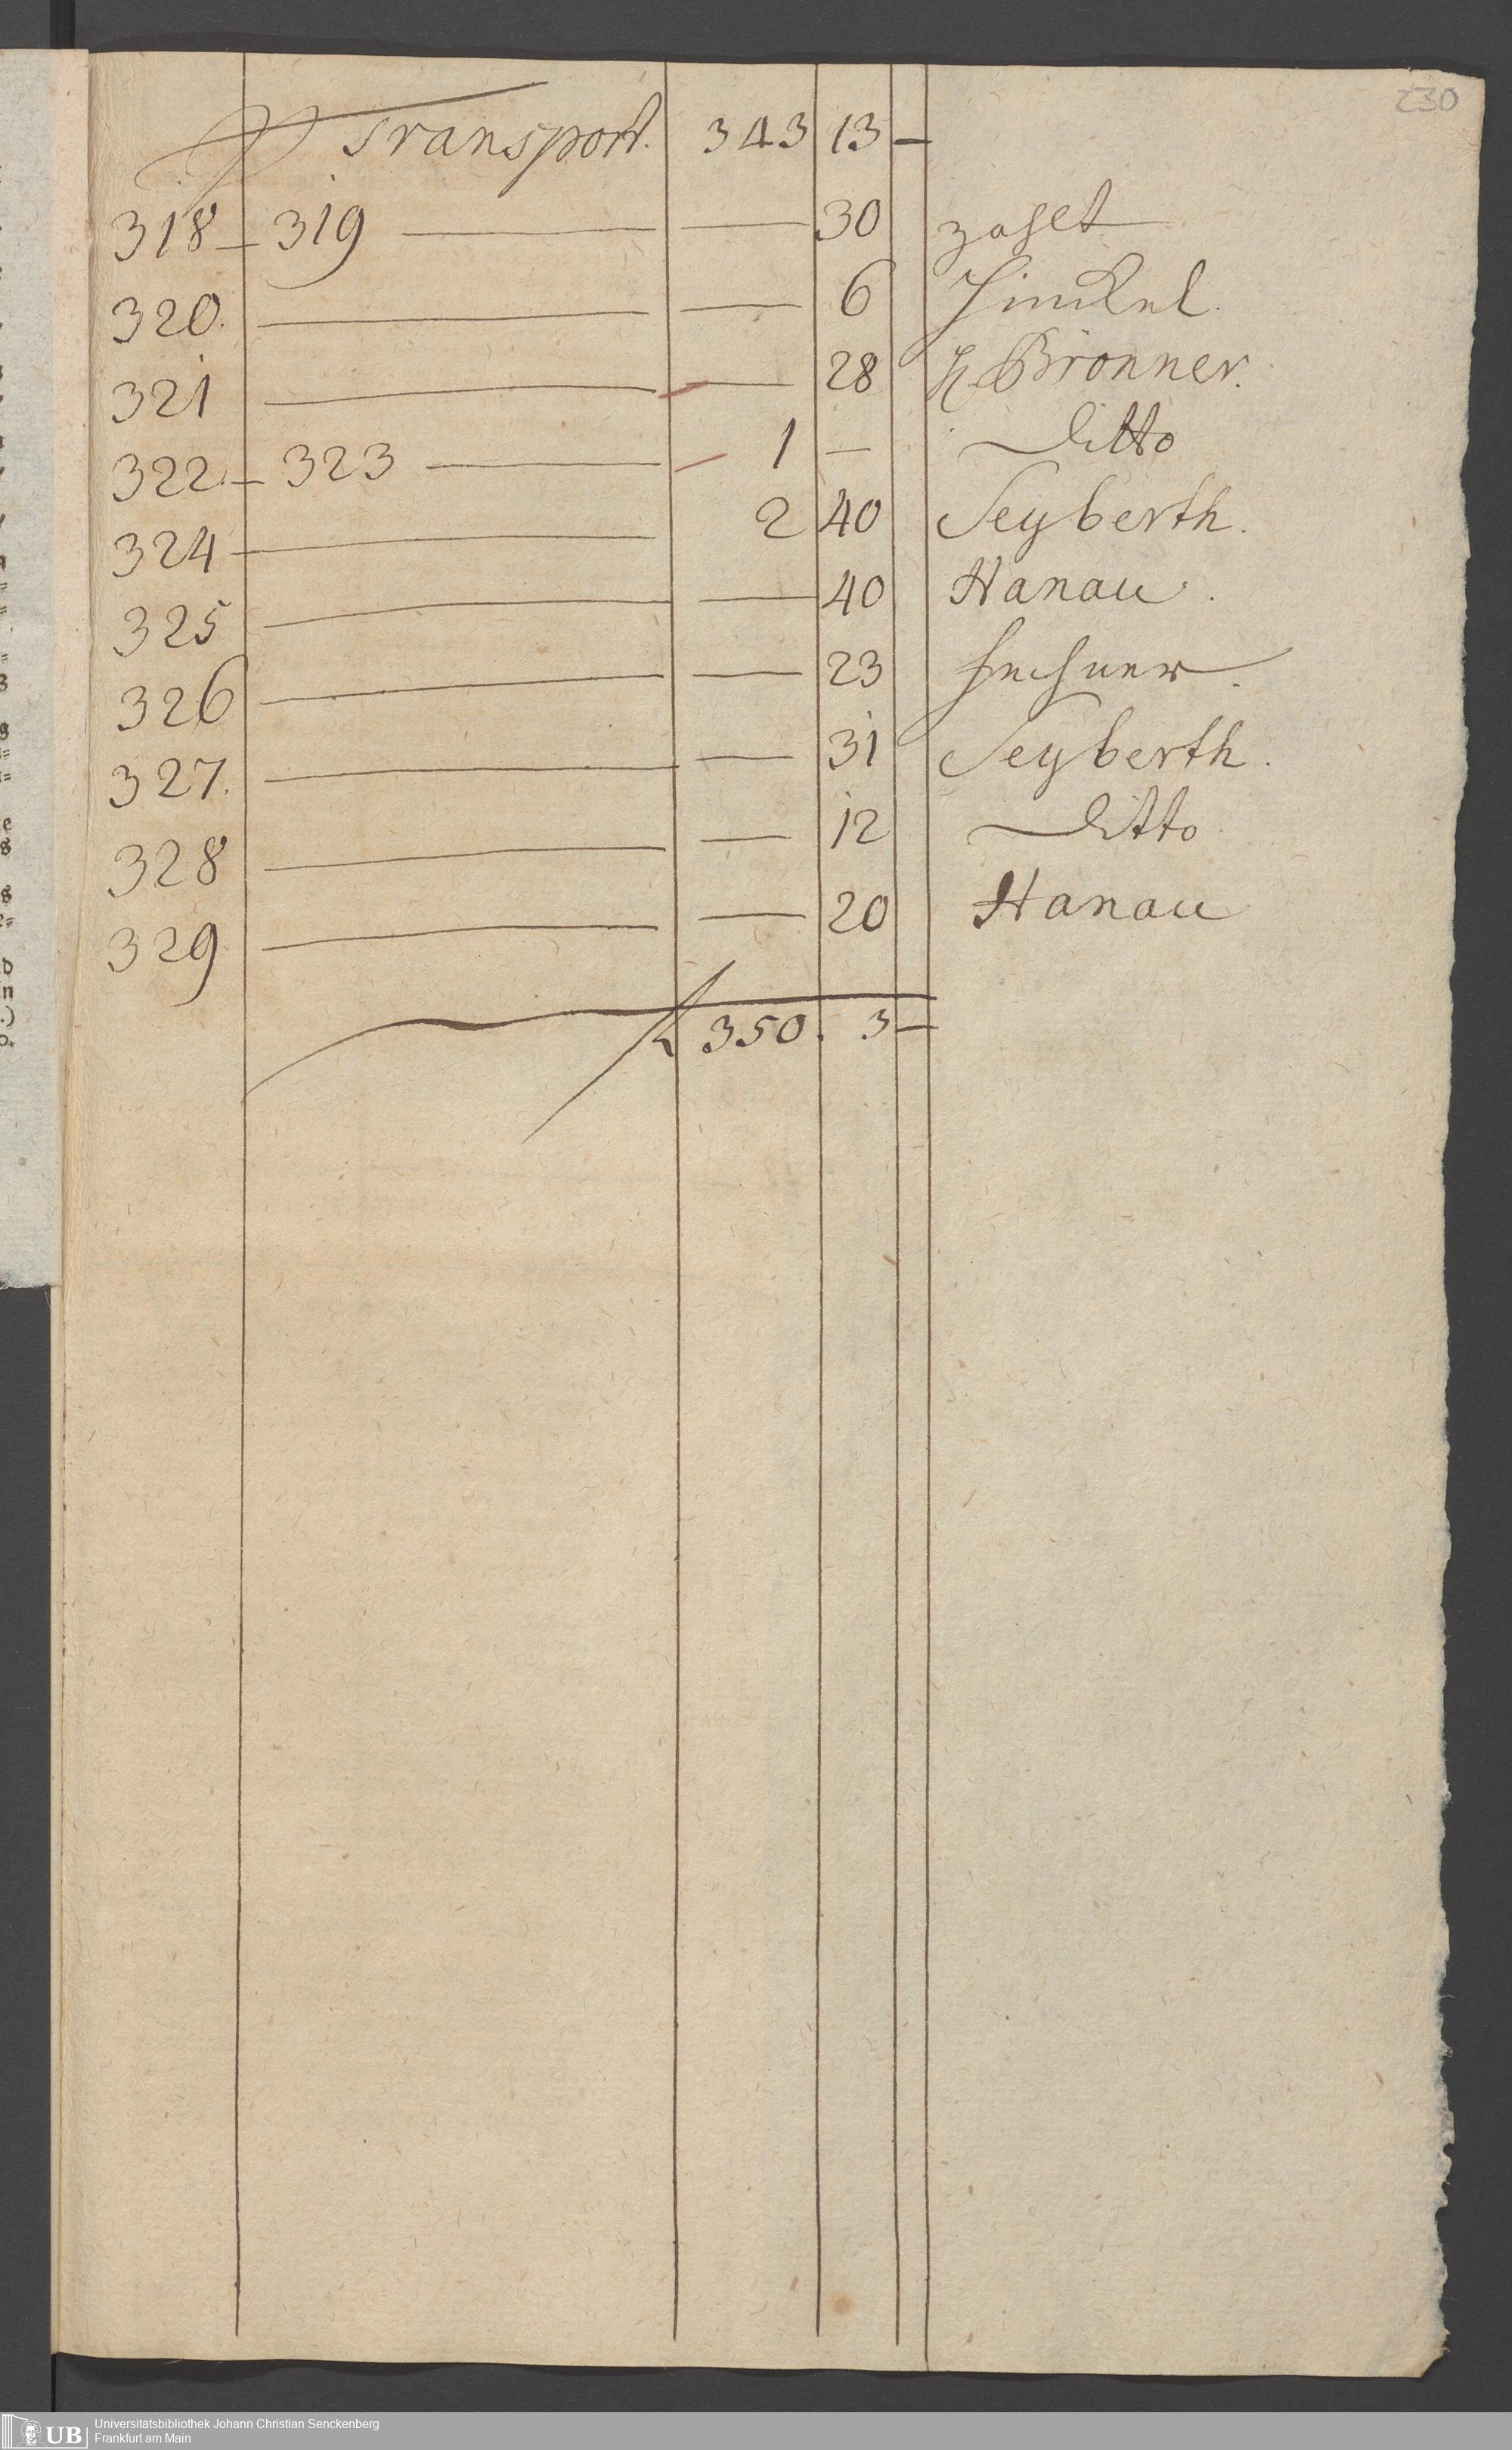 230
P Transport. 343 13 —
318 — 319 — — 30 zahlt
320. — — 6 Hinckel.
321 — — 28 H. Brönner.
322. — 323 — 1 — Ditto
324 — 2 40 Seyberth.
325 — — 40 Hanau.
326 — — 23
327. — — 31 Seyberth.
328 — — 12 Ditto
329 — — 20 Hanau
f 350. 3 —
UB
Universitätsbibliothek Johann Christian Senckenberg
Frankfurt am Main